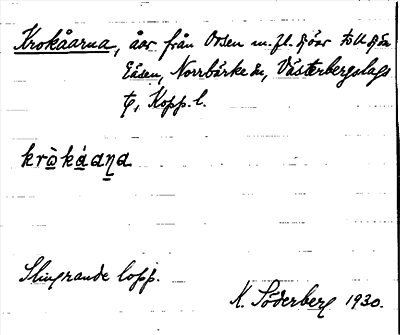 Krokåarna, åar från Orsen m.fl. sjöar till sjön
Eåsen, Norrbärke sn, Västerbergslags
t, Kopp. l.
kròkáana
Slingrande lopp.
K. Söderberg 1930.